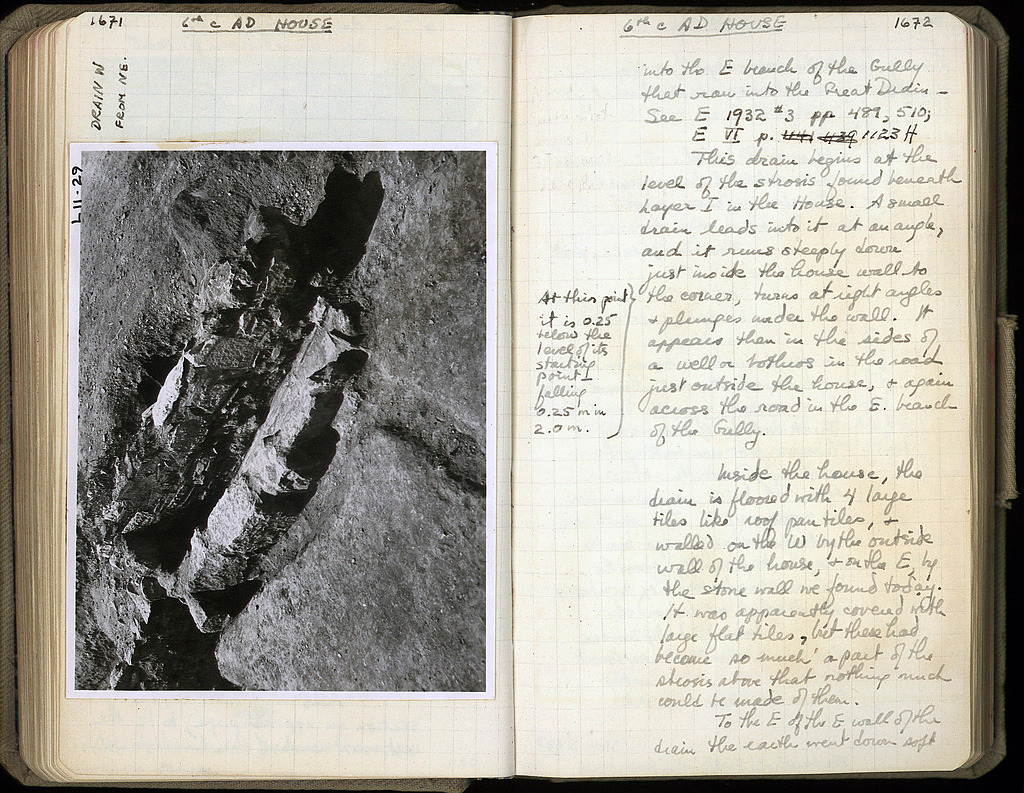 1671
6th c AD HOUSE
DRAIN W
FROM NE.
L11-29
6th c AD HOUSE
1672
into the E branch of the Gully
that ran into the Great Drain –
See E 1932 #3 pp 489, 510;
E VI p. 1123 ff
This drain begins at the
level of the strosis found beneath
Layer I in the House. A small
drain leads into it at an angle,
and it runs steeply down
just inside the house wall to
the corner, turns at right angles
& plunges under the wall. It
appears then in the sides of
a well or bothros in the road
just outside the house, & again
across the road in the E. branch
of the Gully.
At this point
it is 0.25
below the
level of its
starting
point
falling
0.25 m in
2.0 m.
Inside the house, the
drain is floored with 4 large
tiles like roof pan tiles, &
walled on the W by the outside
wall of the house, & on the E, by
the stone wall we found today.
It was apparently covered with
large flat tiles, but these had
become so much a part of the
strosis above that nothing much
could be made of them.
To the E of the E wall of the
drain the earth went down soft